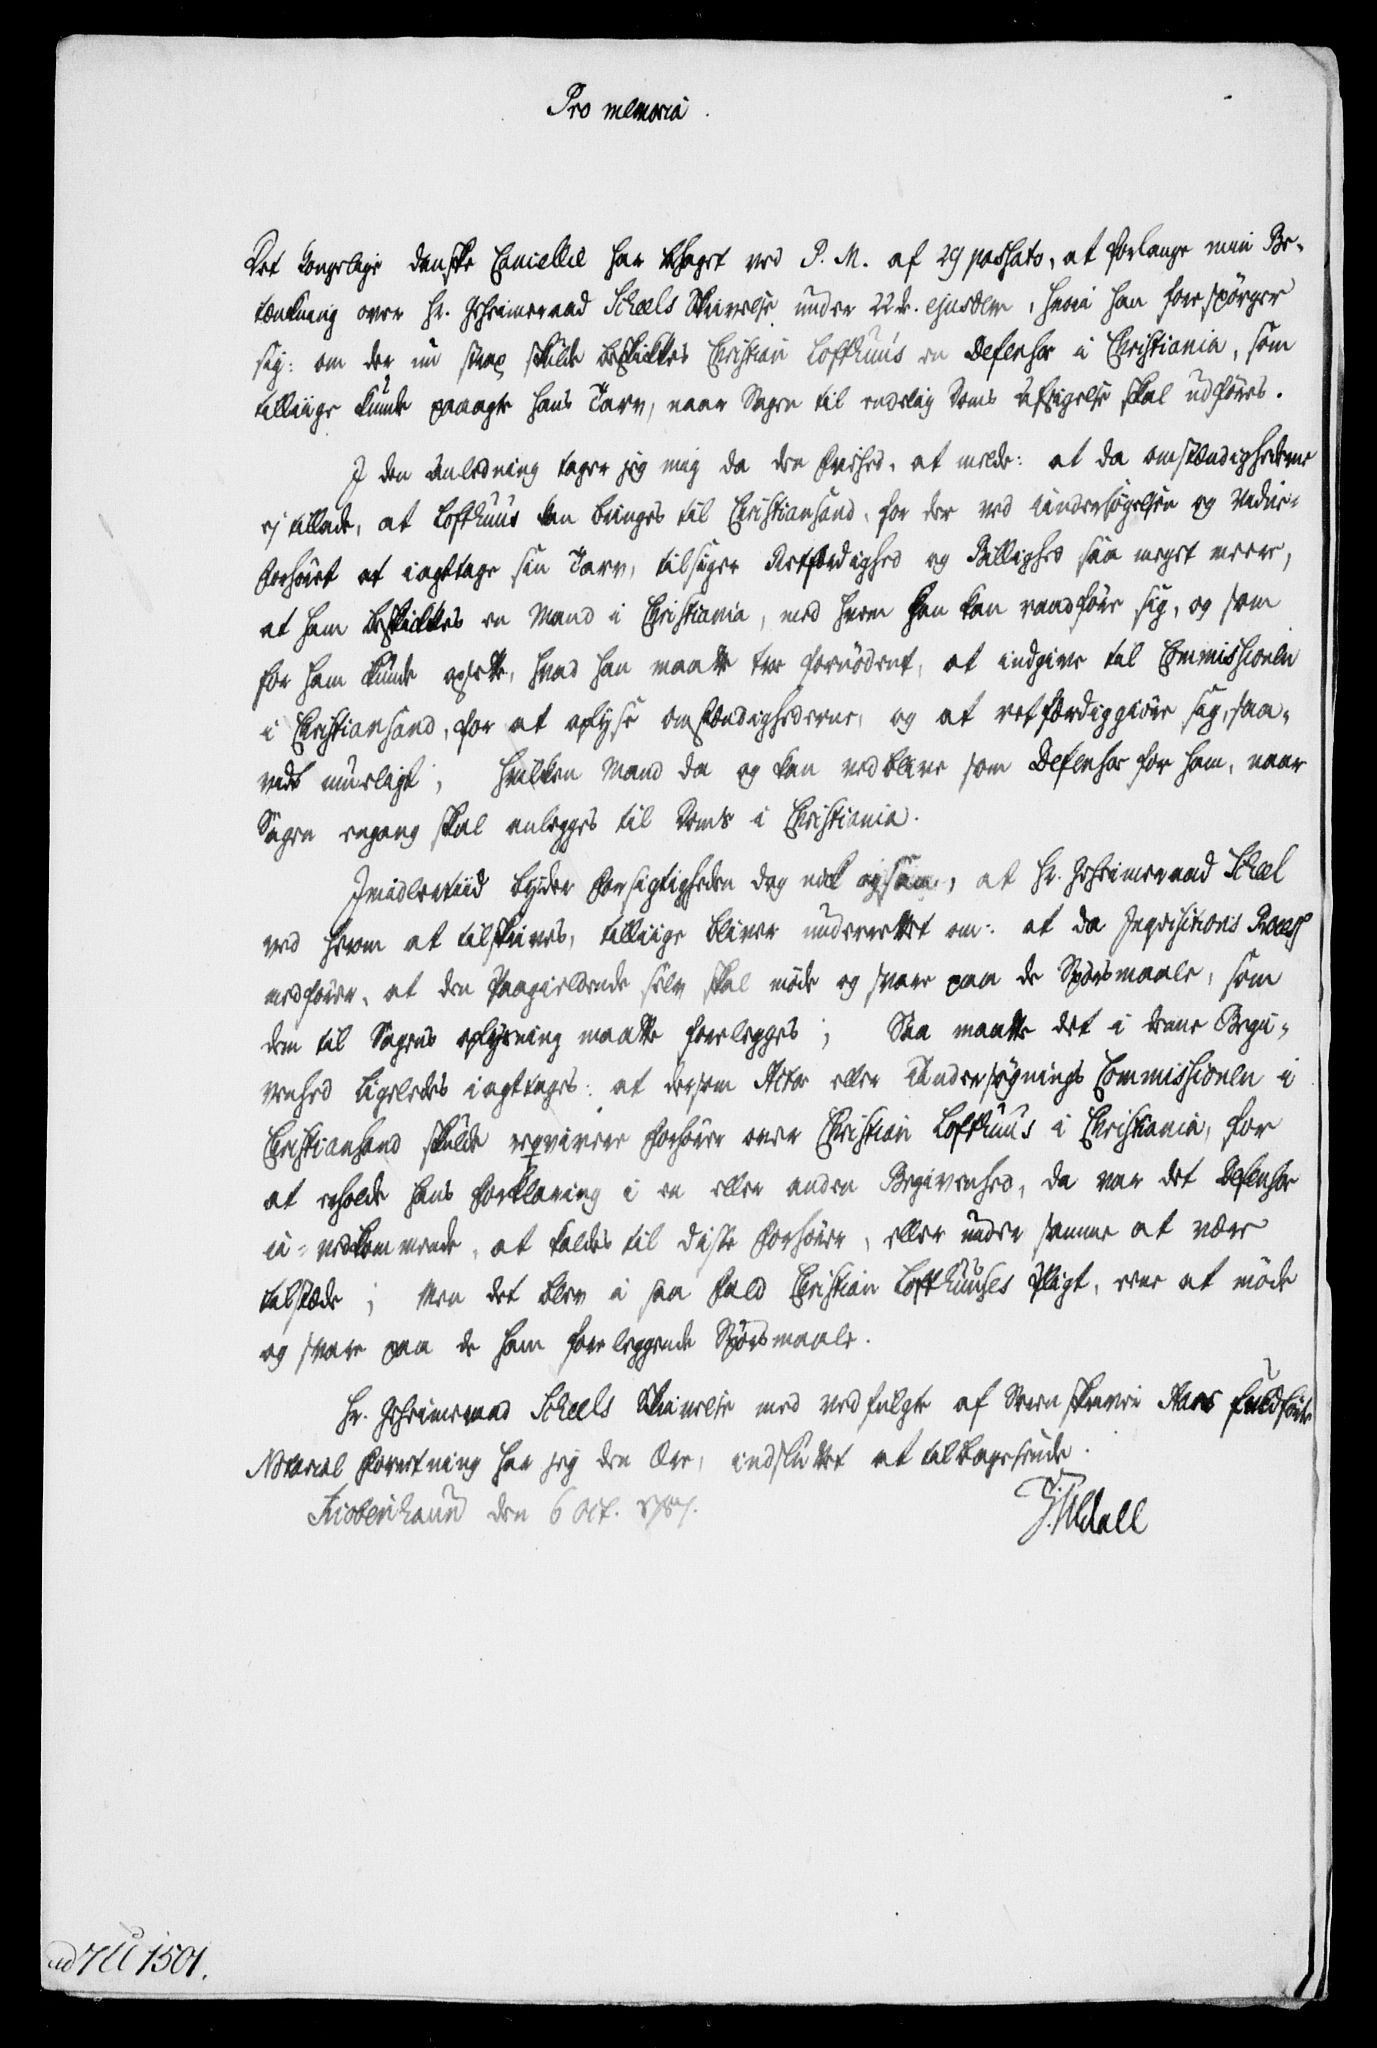 Pro memoria.
Det Kongelige danske Cancellie har behaget ved P. M. af 29 passato, at forlange min Be-
tænkning over Hr. Geheimeraad Scheels Skrivelse under 22de. ejusdem, hvori han forespörger
sig: om der nu strax skulde beskikkes Christian Lofthuus en Defensor i Christiania, som
tilliige kunde paaagte hans Tarv, naar Sagen til endelig Doms Afsigelse skal udföres.
I den Anledning tager jeg mig da den Friehed, at melde: at da omstændighederne
ej tillade, at Lofthuus kan bringes til Christiansand, for der ved Undersögelsen og Vidne-
Forhöret at iagttage sin Tarv, tilsiger Retfærdighed og Billighed saa meget meere,
at ham beskikkes en Mand i Christiania, med hvem han kan raadföre sig, og som
for ham kunde opsætte, hvad han maatte troe fornödent, at indgive til Commissionen
i Christiansand, for at oplyse omstændighederne, og at retfærdiggiöre sig, saa-
vidt mueligt; hvilken Mand da og kan vedblive som Defensor for ham, naar
Sagen engang skal anlegges til Doms i Christiania.
Imidlertiid byder Forsigtigheden dog nok ogsaa, at Hr. Geheimeraad Scheel
ved herom at tilskrives, tilliige bliver underrettet om: at da Inqvisitions Process
medförer, at den Paagieldende selv skal möde og svare paa de Spörsmaale, som
dem til Sagens oplysning maatte forelegges; Saa maatte det i denne Begi-
venhed ligeledes iagttages: at dersom Actor eller Undersøgnings Commissionen i
Christiansand skulde reqvirere Forhörer over Christian Lofthuus i Christiania, for
at erholde hans Forklaring i en eller anden Begivenhed, da var det Defensor
u-vedkommende, at kaldes til disse Forhörer, eller under samme at være
tilstæde; Men det blev i saa Fald Christian Lofthuuses Pligt, eene at möde
og svare paa de ham foreleggende Spörsmaale.
Hr. Geheimeraad Scheels Skrivelse med vedfulgte af Sorenskriver Aars fuldförte
Notarial Forretning har jeg den Ære, indsluttet at tilbagesende.
Kiobenhaun den 6 Oct. 1787.
T. Uldall
ad 7 U 1501.